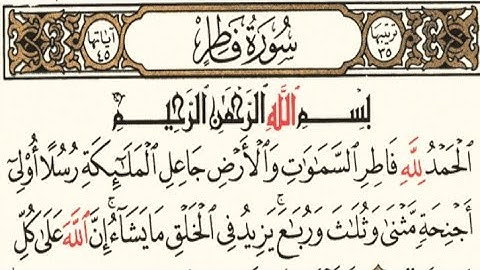 ترتيبها ٣٥ سُورَةُ فَاطِرٍ آيَاتُهَا ٤٥
بِسْمِ ٱللَّهِ ٱلرَّحْمَٰنِ ٱلرَّحِيمِ
ٱلْحَمْدُ لِلَّهِ فَاطِرِ ٱلسَّمَٰوَٰتِ وَٱلْأَرْضِ جَاعِلِ ٱلْمَلَٰٓئِكَةِ رُسُلًا أُوْلِىٓ
أَجْنِحَةٍ مَّثْنَىٰ وَثُلَٰثَ وَرُبَٰعَ ۚ يَزِيدُ فِى ٱلْخَلْقِ مَا يَشَآءُ ۚ إِنَّ ٱللَّهَ عَلَىٰ كُلِّ